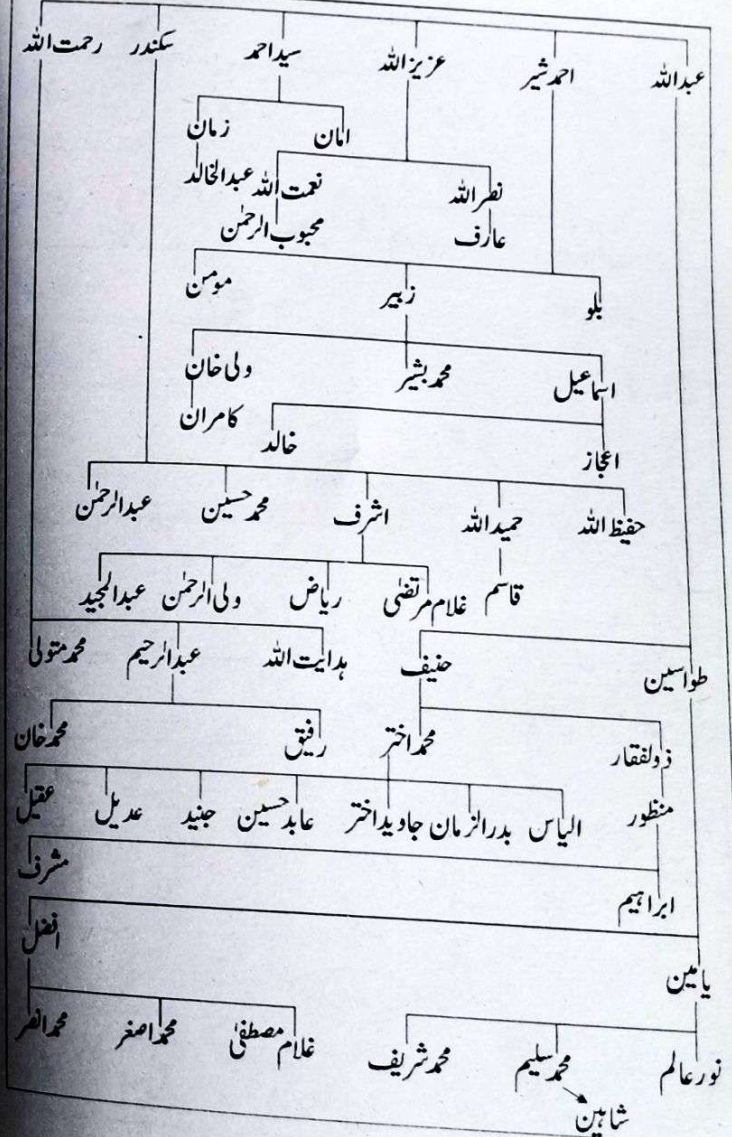 عبداللہ احمد شیر عزیز اللہ سید احمد سکندر رحمت اللہ
امان زمان
نصر اللہ نعمت اللہ عبدالخالد
عارف محبوب الرحمٰن
بلو زبیر مومن
اسماعیل محمد بشیر ولی خان
اعجاز خالد کامران
حفیظ اللہ حمید اللہ اشرف محمد حسین عبدالرحمٰن
قاسم غلام مرتضیٰ ریاض ولی الرحمٰن عبدالمجید
طواسین حنیف ہدایت اللہ عبدالرحیم محمد متولی
ذولفقار محمد اختر رفیق محمد خان
منظور الیاس بدرالزمان جاوید اختر عابد حسین جنید عدیل عقیل
ابراہیم مشرف
یامین افضل
نور عالم محمد سلیم محمد شریف غلام مصطفیٰ محمد اصغر محمد انصر
شاہین